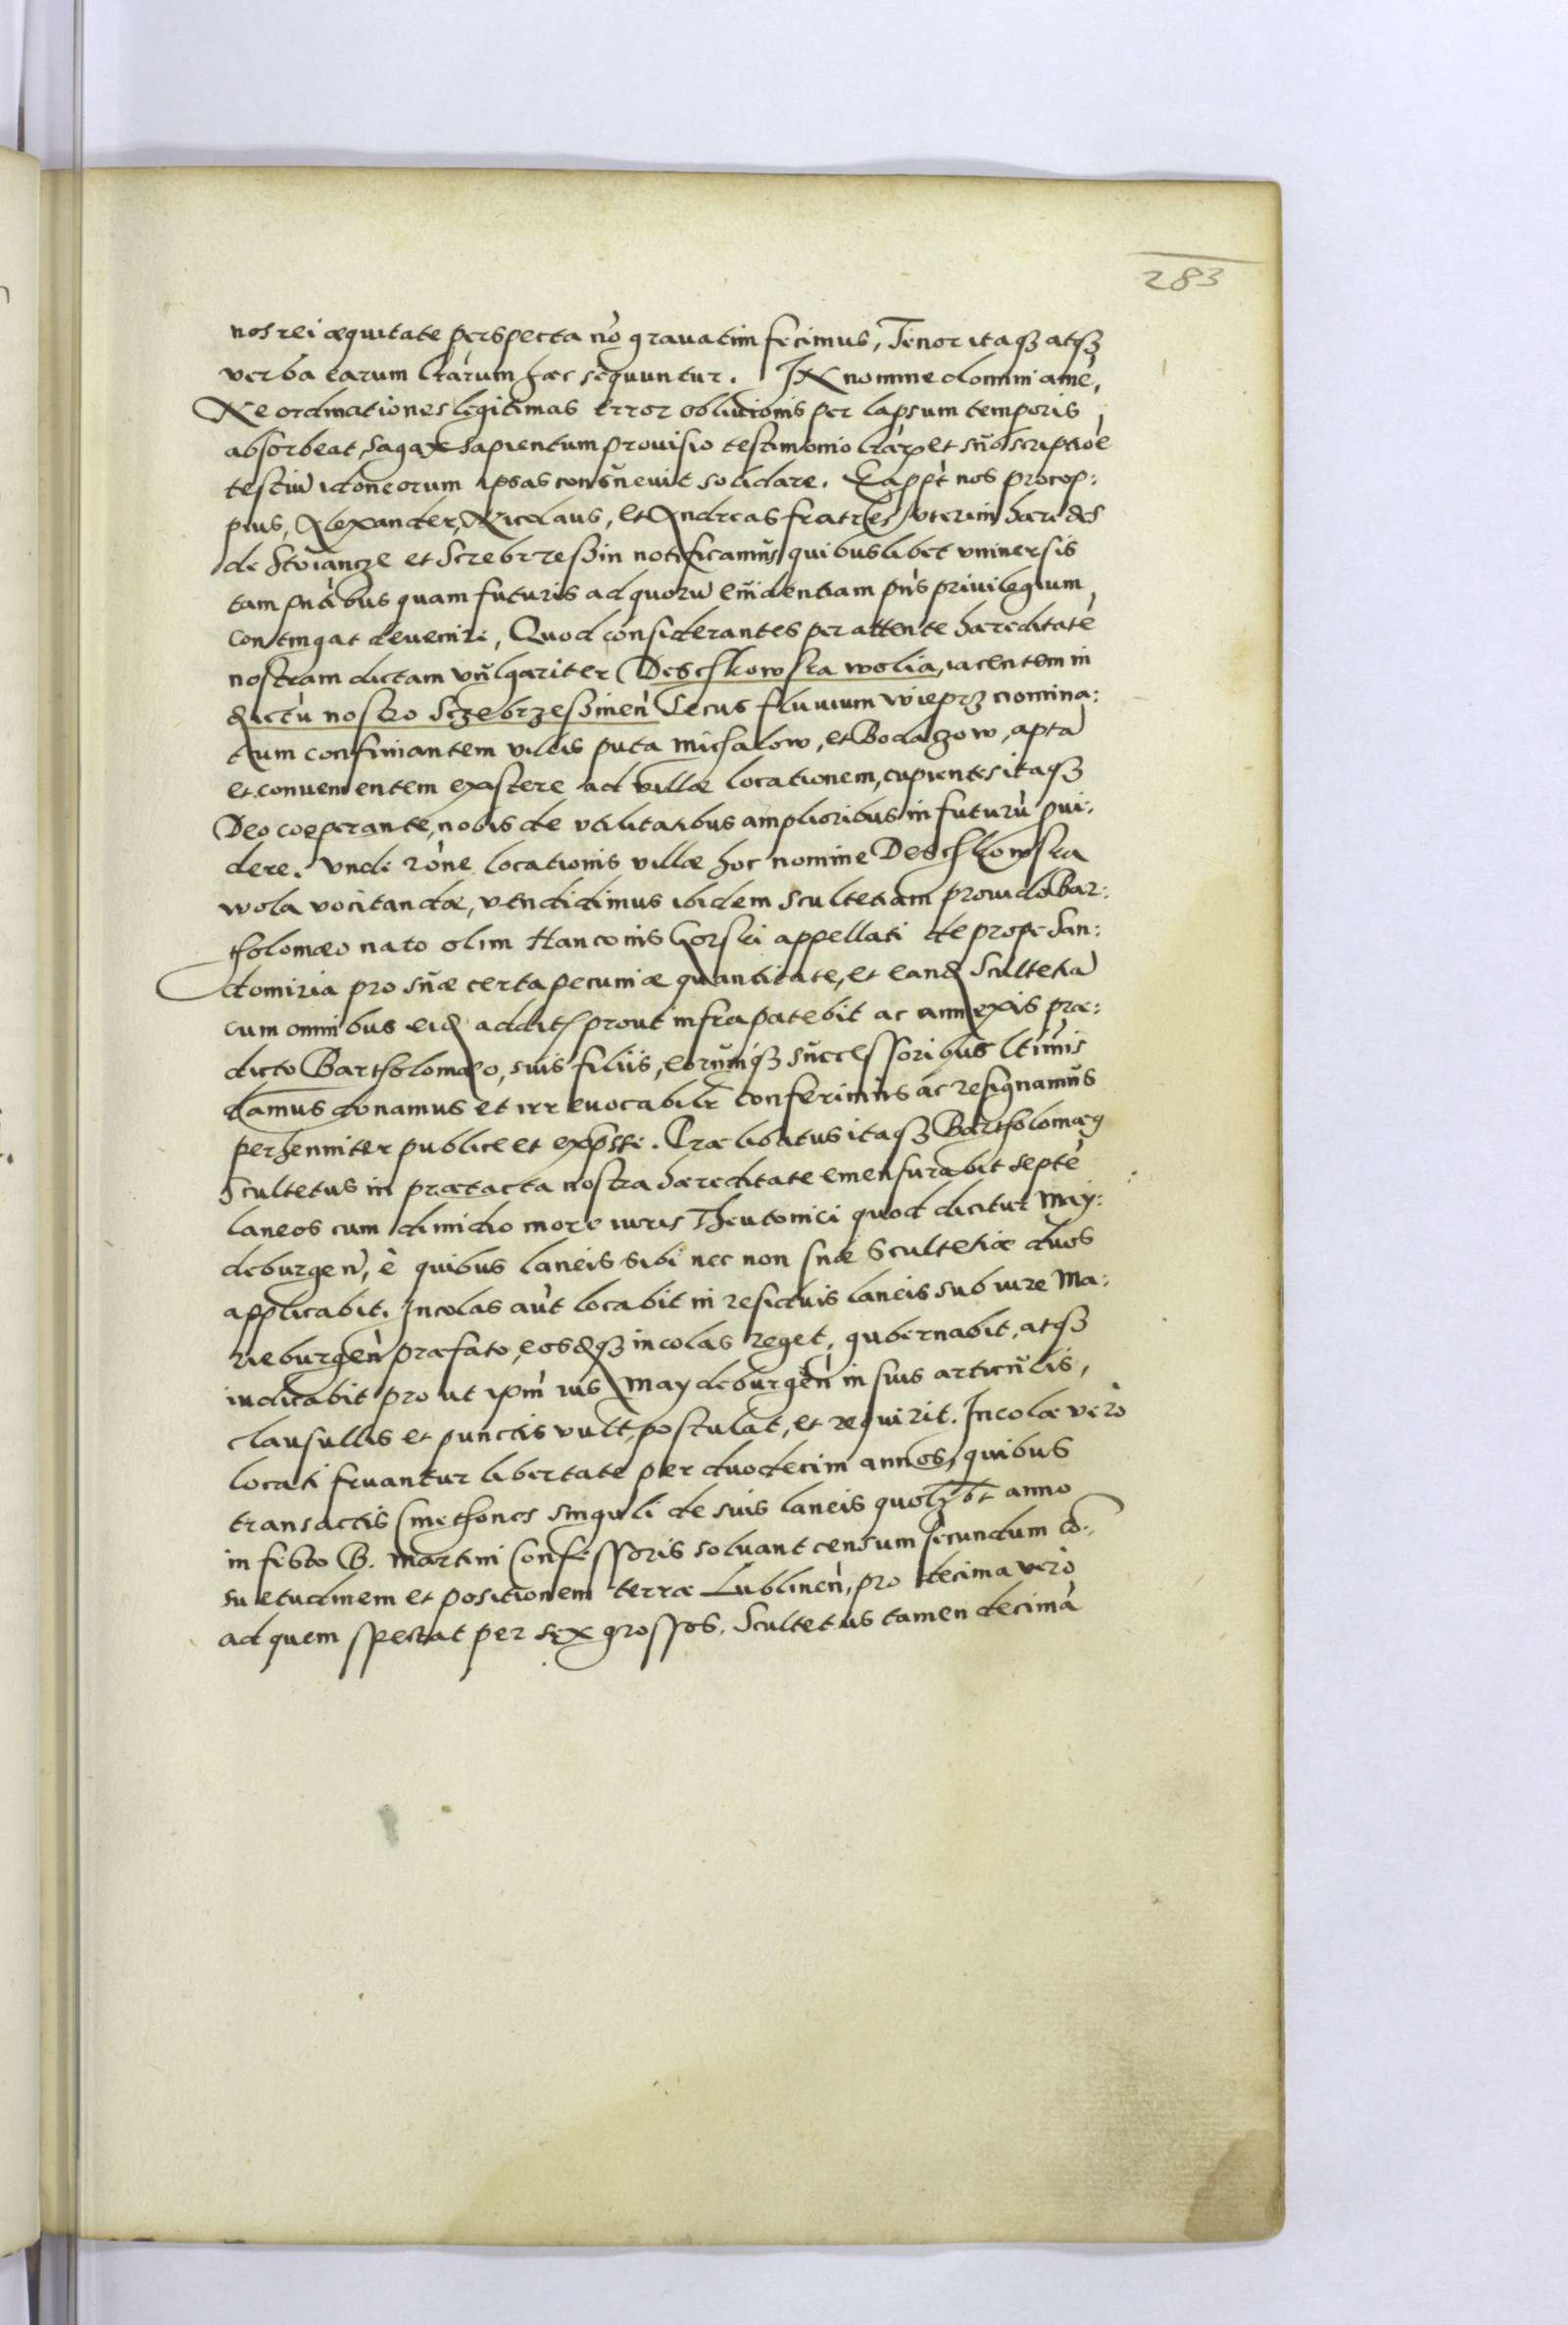 283
nos rei æquitate perspecta nō grauatim fecimus, Tenor itaqꝫ atqꝫ
verba earum lr̄arum hæc sequuntur. IN nomine domini amē,
Ne ordinationes legitimas error obliuionis per lapsum temporis
absorbeat, sagax sapientum prouisio testimonio lr̄arꝝ et sŭbscriptiōe
testiū idoneorum ipsas consŭeuit solidare. Ea ppt̀ nos procop:
pius, Alexander, Nicolaus, et Andreas fratres vterini hæredes
de Stoiancze et Screbreszin notificamŭs quibuslibet vniuersis
tam pn̄tibus quam futuris ad quorū eŭidentiam pn̄s priuilegium
contingat deuenire, Quod considerantes per attente hæreditatē
nostram dictam vŭlgariter Deschkowska wolia, iacentem in
dictū nostro Sczebrzeszinen̄ Secus fluuium wieprz nomina:
tum confiniantem villis puta Michalow, et Bodaczow, aptā
et conuenientem existere ad villæ locationem, cupientes itaqꝫ
Deo cooperante, nobis de vtilitatibus amplioribus in futurū pui:
dere. Vnde rōne locationis villæ hoc nomine Deschkowska
wola vocitandæ, vendidimus ibidem scultetiam prouido Bar:
tholomæo nato olim Hanconis Gorski appellati de prope San:
domiria pro sŭæ certa pecuniæ quantitate, et eand Scultetiā
cum omnibus eid addit prout infra patebit ac annexis præ:
dicto Bartholomæo, suis filiis, eorŭmqꝫ sŭccessoribus lt̄imis
damus donamus et irreuocabilr̄ conferimŭs ac resignamŭs
perhenniter publice et exp̄sse. Prælibatus itaqꝫ Bartholomæꝰ
Scultetus in prætacta nostra hæreditate emensurabit septē
laneos cum dimidio more iuris Theutonici quod dicitur May:
deburgen̄, è quibus laneis sibi nec non sŭæ Scultetiæ duos
applicabit. Incolas aūt locabit in residuis laneis sub iure Ma:
rieburgen̄ præfato, eosdqꝫ incolas reget, gubernabit, atqꝫ
iudicabit prout ipm̄ ius Maydeburgen̄ in suis articŭlis,
clausullis et punctis vult, postulat, et requirit. Incolæ verò
locati fruantur libertate per duodecim annos, quibus
transactis Cmethones singuli de suis laneis quolꝫbt anno
in festo B. Martini Confessoris soluant censum secundum cō:
suetudinem et positionem terræ Lublinen̄, pro decima verò
ad quem spectat per sex grossos. Scultetus tamen decimā